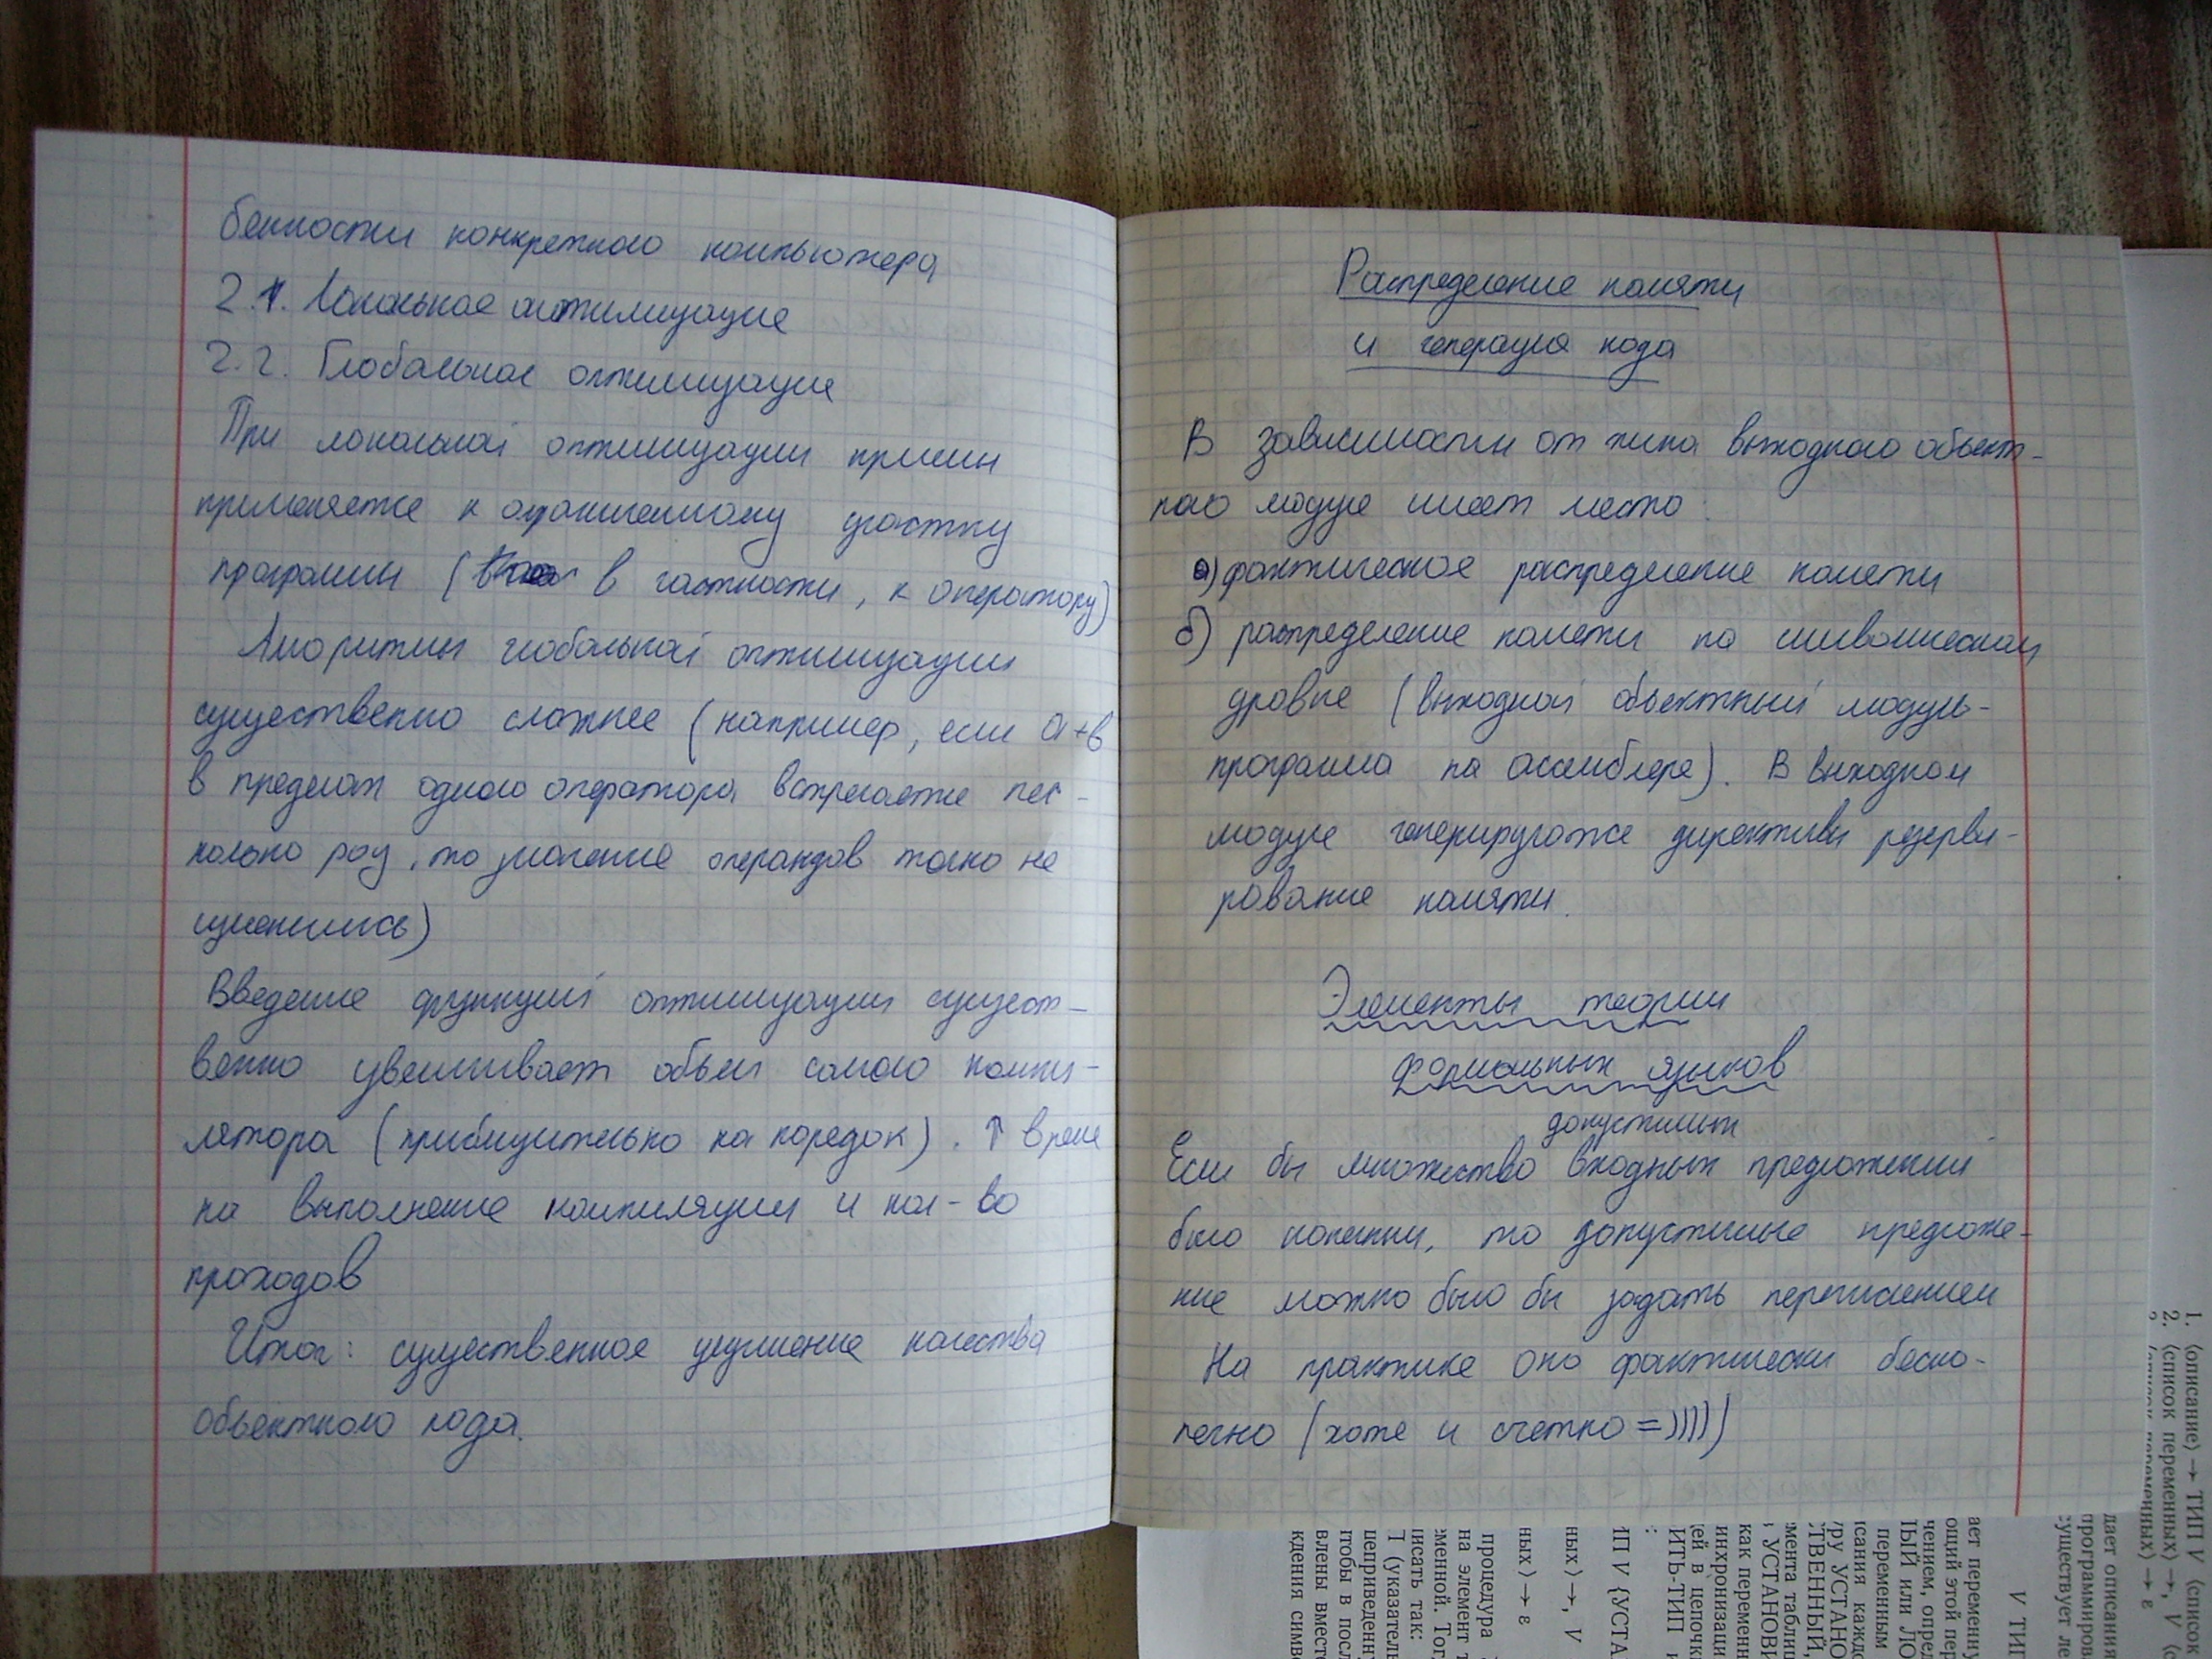 бенности конкретного компьютера
2.1. Локальная оптимизация
2.2. Глобальная оптимизация
При локальной оптимизации
применяется к ограниченному участку
программы ( в частности, к оператору)
Алгоритмы глобальной оптимизации
существенно сложнее (например, если a+b
в пределах одного оператора встречается нес-
колько раз, то значение операндов точно не
изменились)
Введение функций оптимизации сущест-
венно увеличивает объем самого компи-
лятора (приблизительно на порядок). ↑ время
на выполнение компиляции и кол-во
проходов
Итог: существенное улучшение качества
объектного кода.
Распределение памяти
и генерация кода
В зависимости от типа выходного объект-
ного модуля имеет место:
а) фактическое распределение памяти
б) распределение памяти на символическом
уровне (выходной объектный модуль-
программа на ассемблере). В выходном
модуле генерируются директивы резерви-
рования памяти.
Элементы теории
формальных языков
допустимых
Если бы множество входных предложений
было конечным, то допустимые предложе-
ния можно было бы задать перечислением
На практике оно фактически беско-
нечно (хотя и счетно =)))))
1. ⟨описание⟩ → ТИП V ⟨список
2. ⟨список переменных⟩ →, V ⟨с
дает описания
программиров
существует ле
V ТИП
ает переменну
ощий этой пер
чением, опред
ЛЫЙ или ЛО
переменным
исания каждо
УРУ УСТАНО
СТВЕННЫЙ,
мента таблиц
УСТАНОВИ
как переменн
инхронизаци
ей в цепочк
ИТЬ-ТИП и
:
ИП V {УСТА
ных⟩ →, V
ных⟩ → ε
процедура
на элемент т
менной. Тог
писать так:
П (указатель
цеприведенну
чтобы в посл
влены вместо
ждения симв